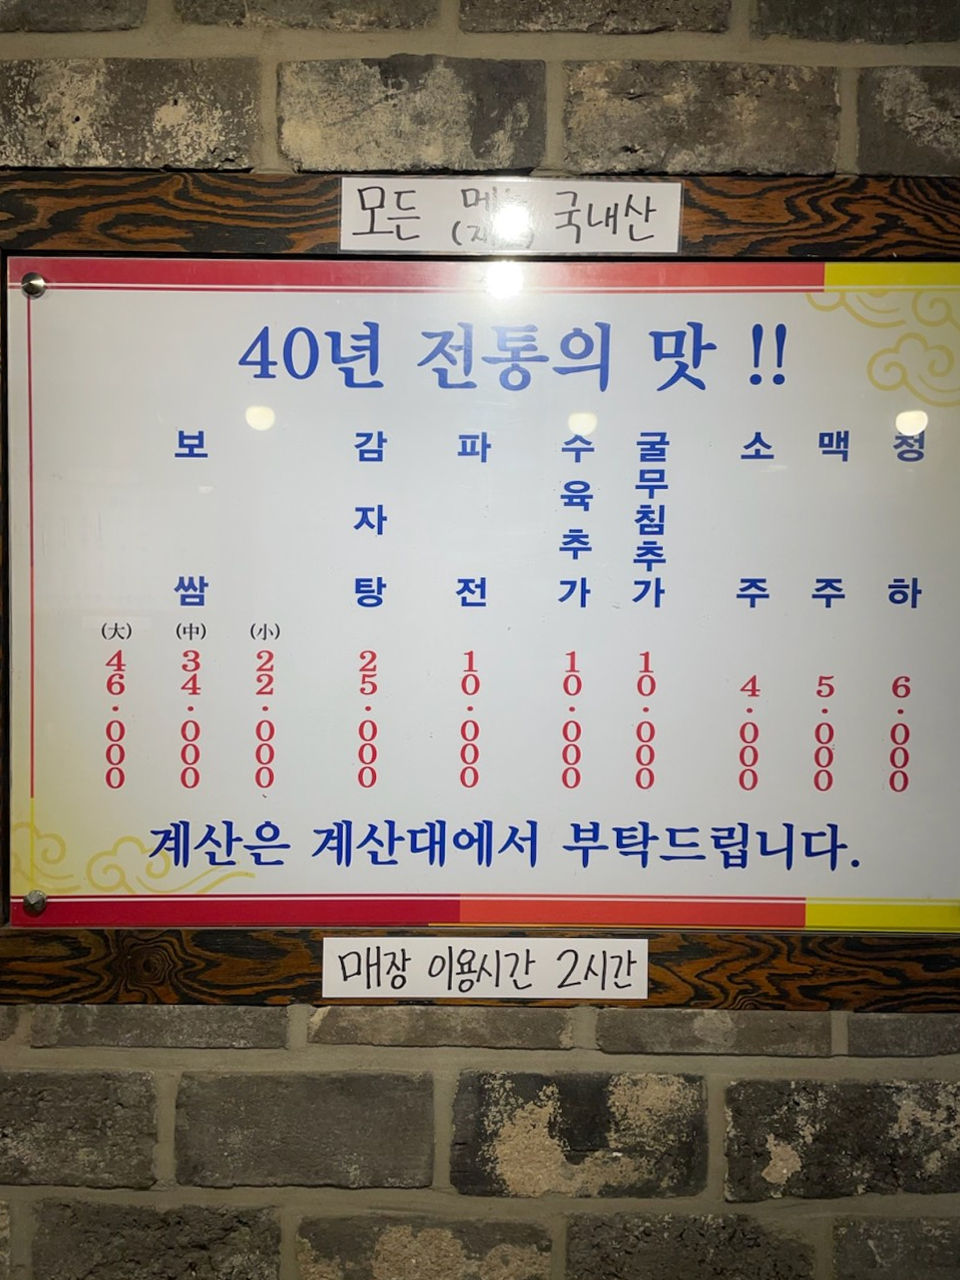 모든 국내산
40년 전통의 맛 !!
보쌈 감자탕 파전 수육추가 굴무침추가 소주 맥주 청하
(大) (中) (小)
46.000 34.000 22.000 25.000 10.000 10.000 10.000 4.000 5.000 6.000
계산은 계산대에서 부탁드립니다.
매장 이용시간 2시간